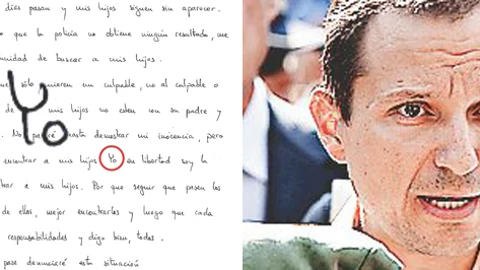 días pasan y mis hijos siguen sin aparecer.
que la policía no obtiene ningún resultado, me
unidad de buscar a mis hijos.
sólo quieren un culpable, no al culpable o
de mis hijos no esten con su padre y
Yo
No hasta demostrar mi inocencia, pero
encontrar a mis hijos Yo en libertad soy la
trar a mis hijos. Por que seguir que pasen los
de ellos, mejor encontrarlos y luego que cada
responsabilidades y digo bien, todas.
pase denunciaré esta situación